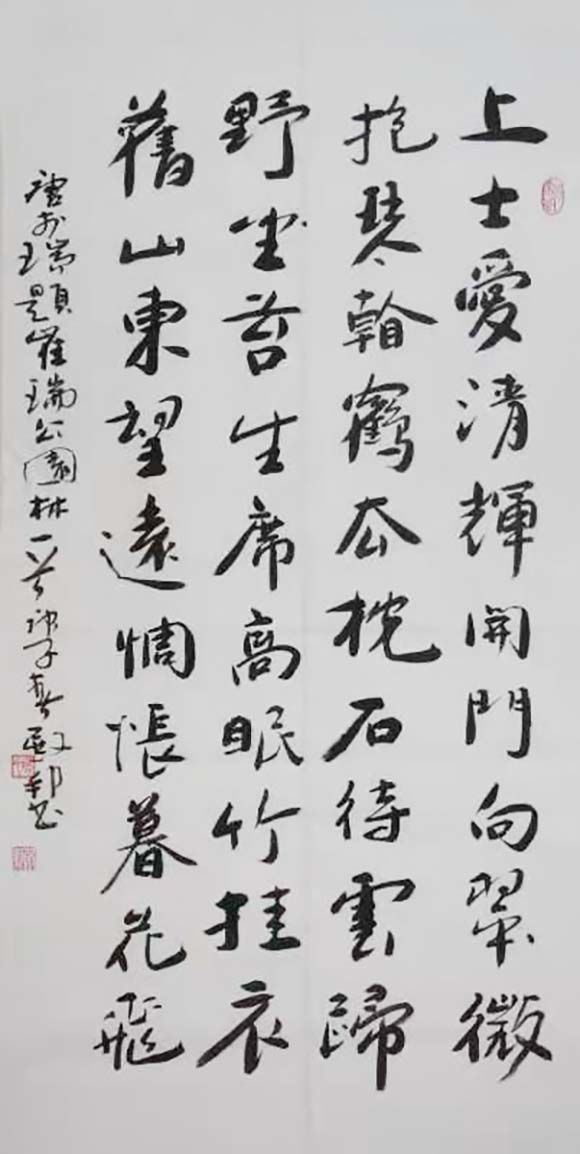 上士愛清輝開門向翠微
抱琴看鶴去枕石待雲歸
野坐苔生席高眠竹挂衣
舊山東望遠惆悵暮花飛
唐瑞題崔瑞公園林一首